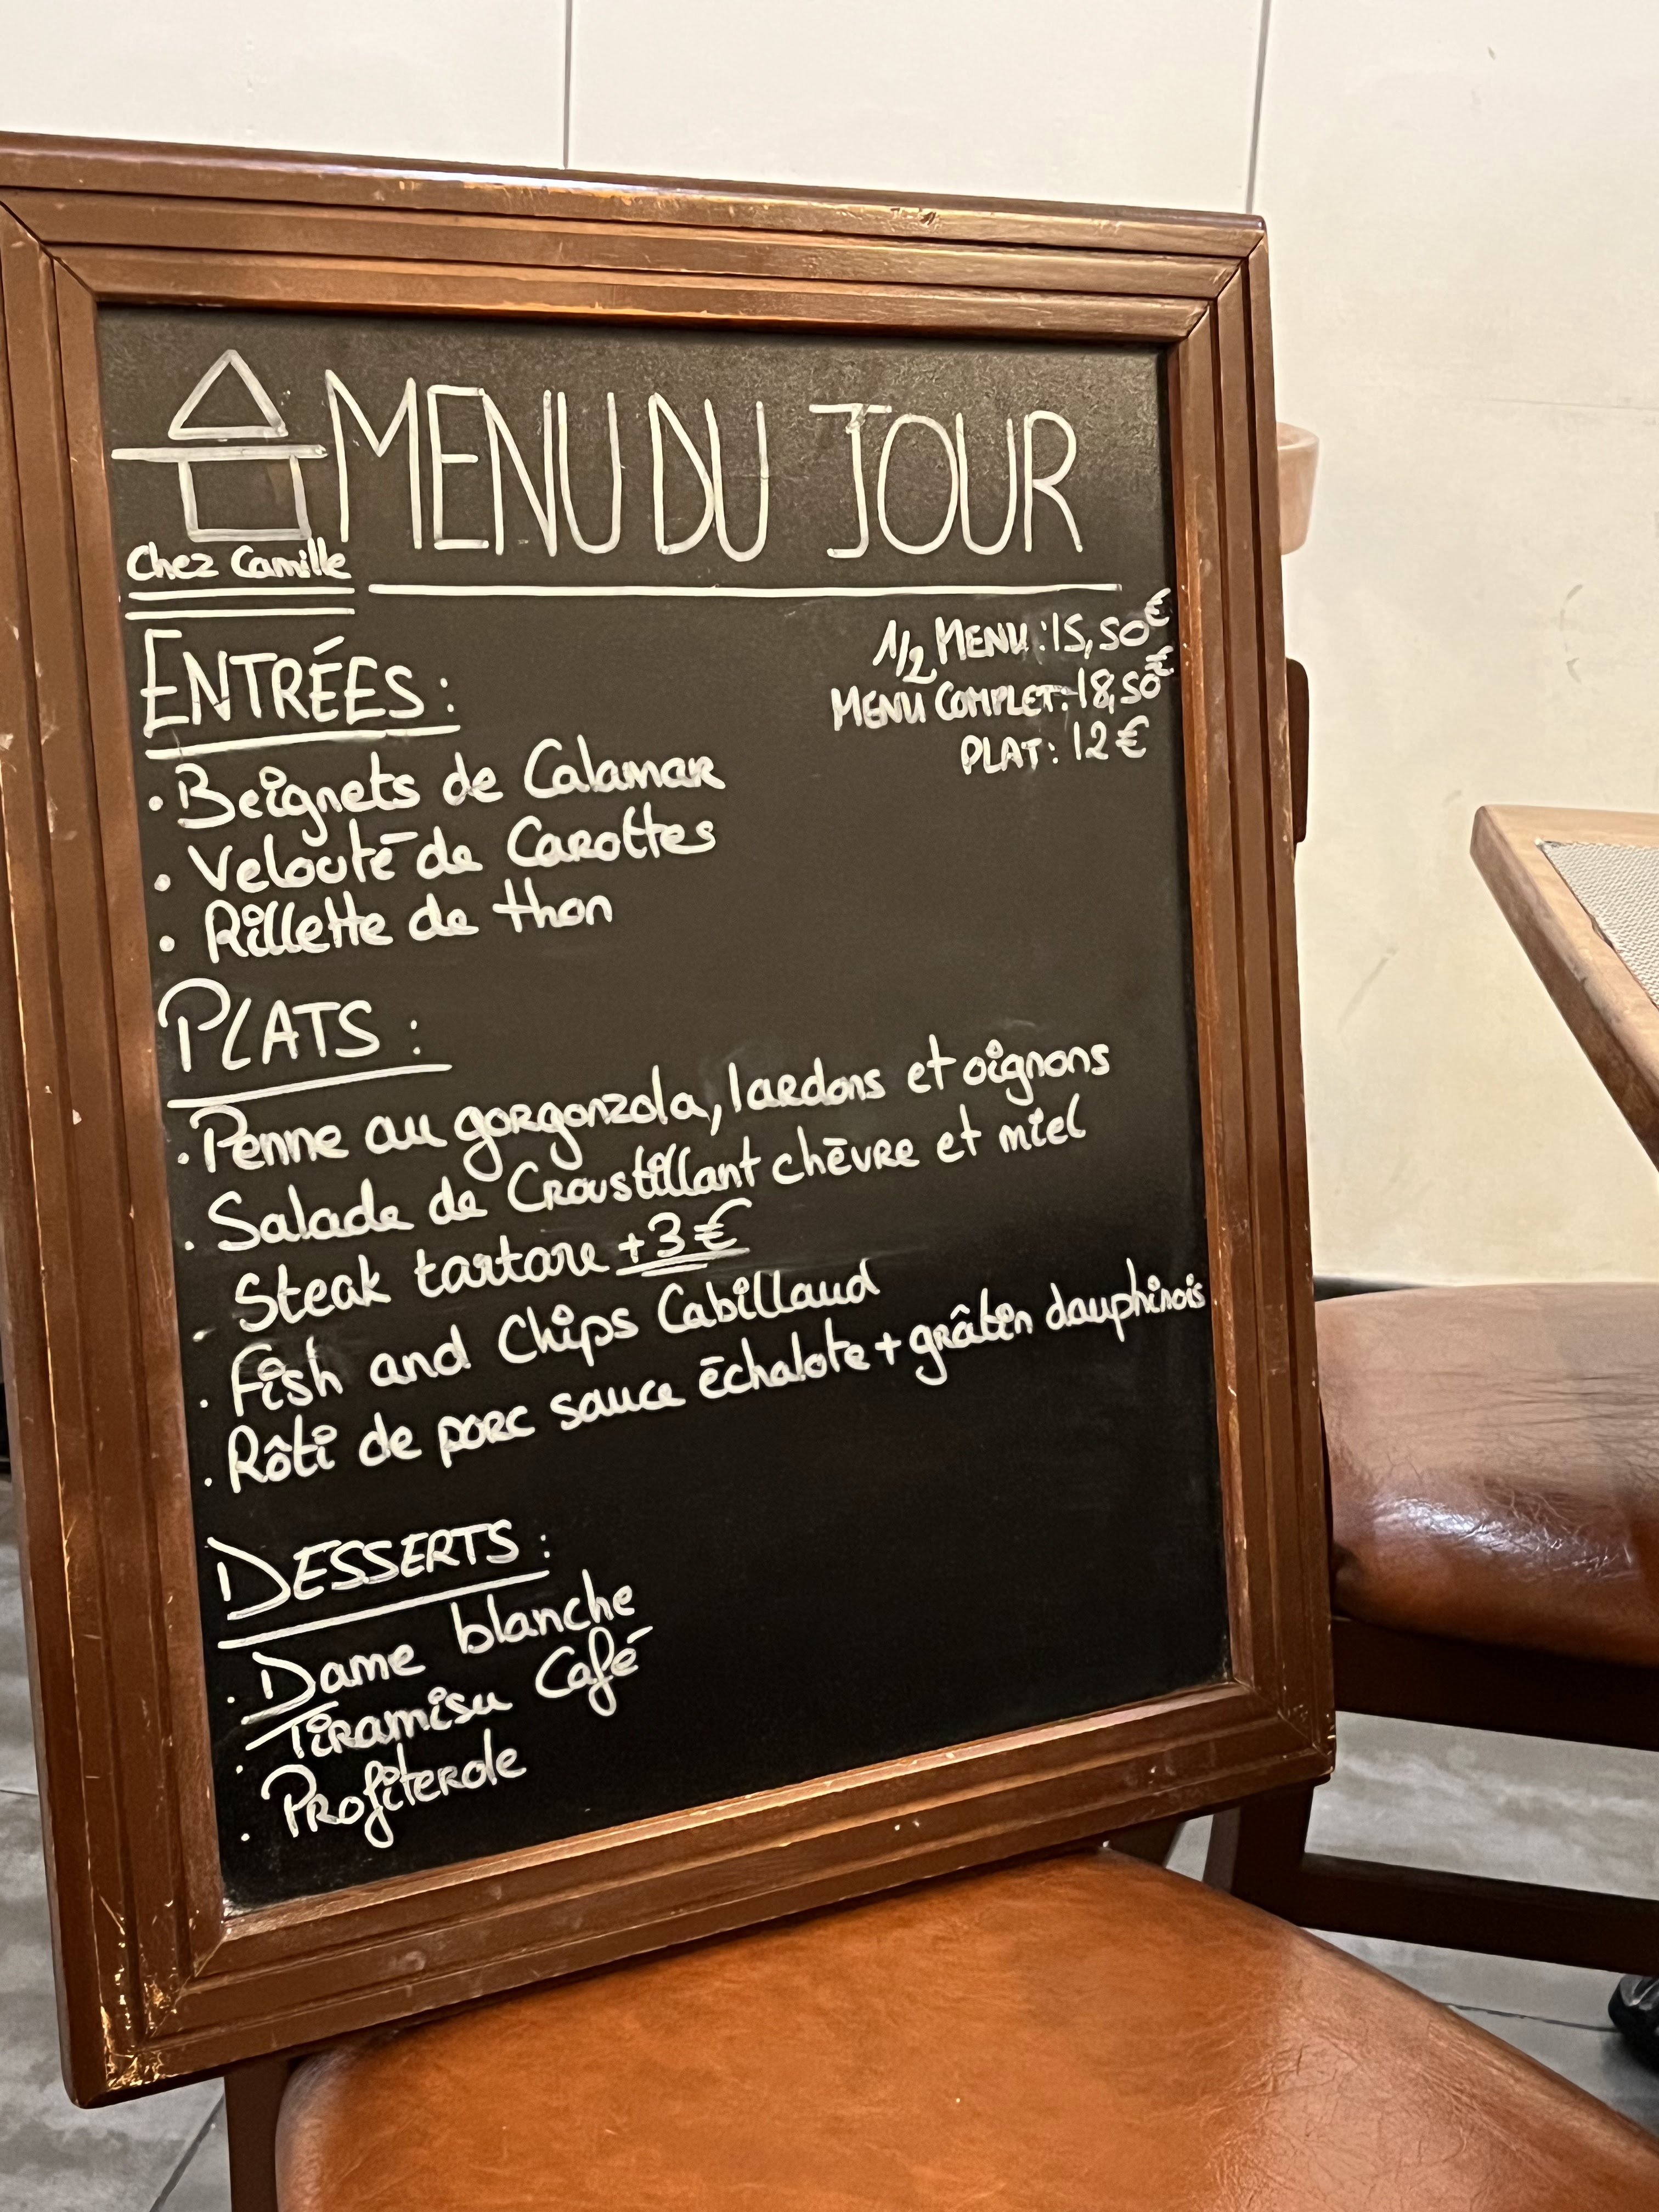 MENU DU JOUR
Chez Camille
1/2 MENU : 15,50€
MENU COMPLET : 18,50€
PLAT : 12€
ENTRÉES :
• Beignets de Calamar
• Velouté de Carottes
• Rillette de thon
PLATS :
• Penne au gorgonzola, lardons et oignons
• Salade de Croustillant chèvre et miel
• Steak tartare +3€
• Fish and Chips Cabillaud
• Rôti de porc sauce échalote + grâtin dauphinois
DESSERTS :
• Dame blanche
• Tiramisu Café
• Profiterole